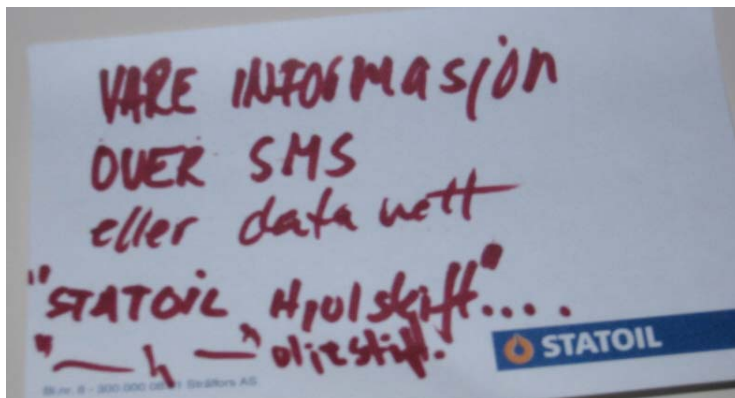 VARE INFORMASJON
OVER SMS
eller data nett
"STATOIL Hjulskift"....
"— h —" oljeskift.
STATOIL
Bl.nr. 8 - 300.000 Strålfors AS